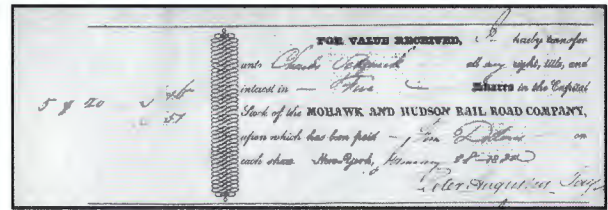 FOR VALUE RECEIVED, I hereby transfer
unto Charles all my right, title, and
interest in — Five — Shares in the Capital
Stock of the MOHAWK AND HUDSON RAIL ROAD COMPANY,
upon which has been paid — Dollars on
each share New-York, January 28
5 & 20
57
Peter Augustus Jay